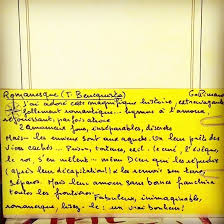 Romanesque (T. Benacquista) Gallimard
j'ai adoré cette magnifique histoire, extravagante
follement romantique... hymne à l'amour,
réjouissant, parfois
2 amoureux fous, inséparables, discrets
Mais les envieux sont aux aguets. Un leur prête des
vices cachés... Prison, torture, exil. Le curé, l'évêque,
le roi, s'en mêlent... même Dieu que les répudie
(après leur décapitation!) et les renvoie sur terre,
séparés. Mais leur amour sans borne franchira
toutes les frontières.
Fabuleux, inimaginable,
romanesque, lisez-le: un vrai bonheur!